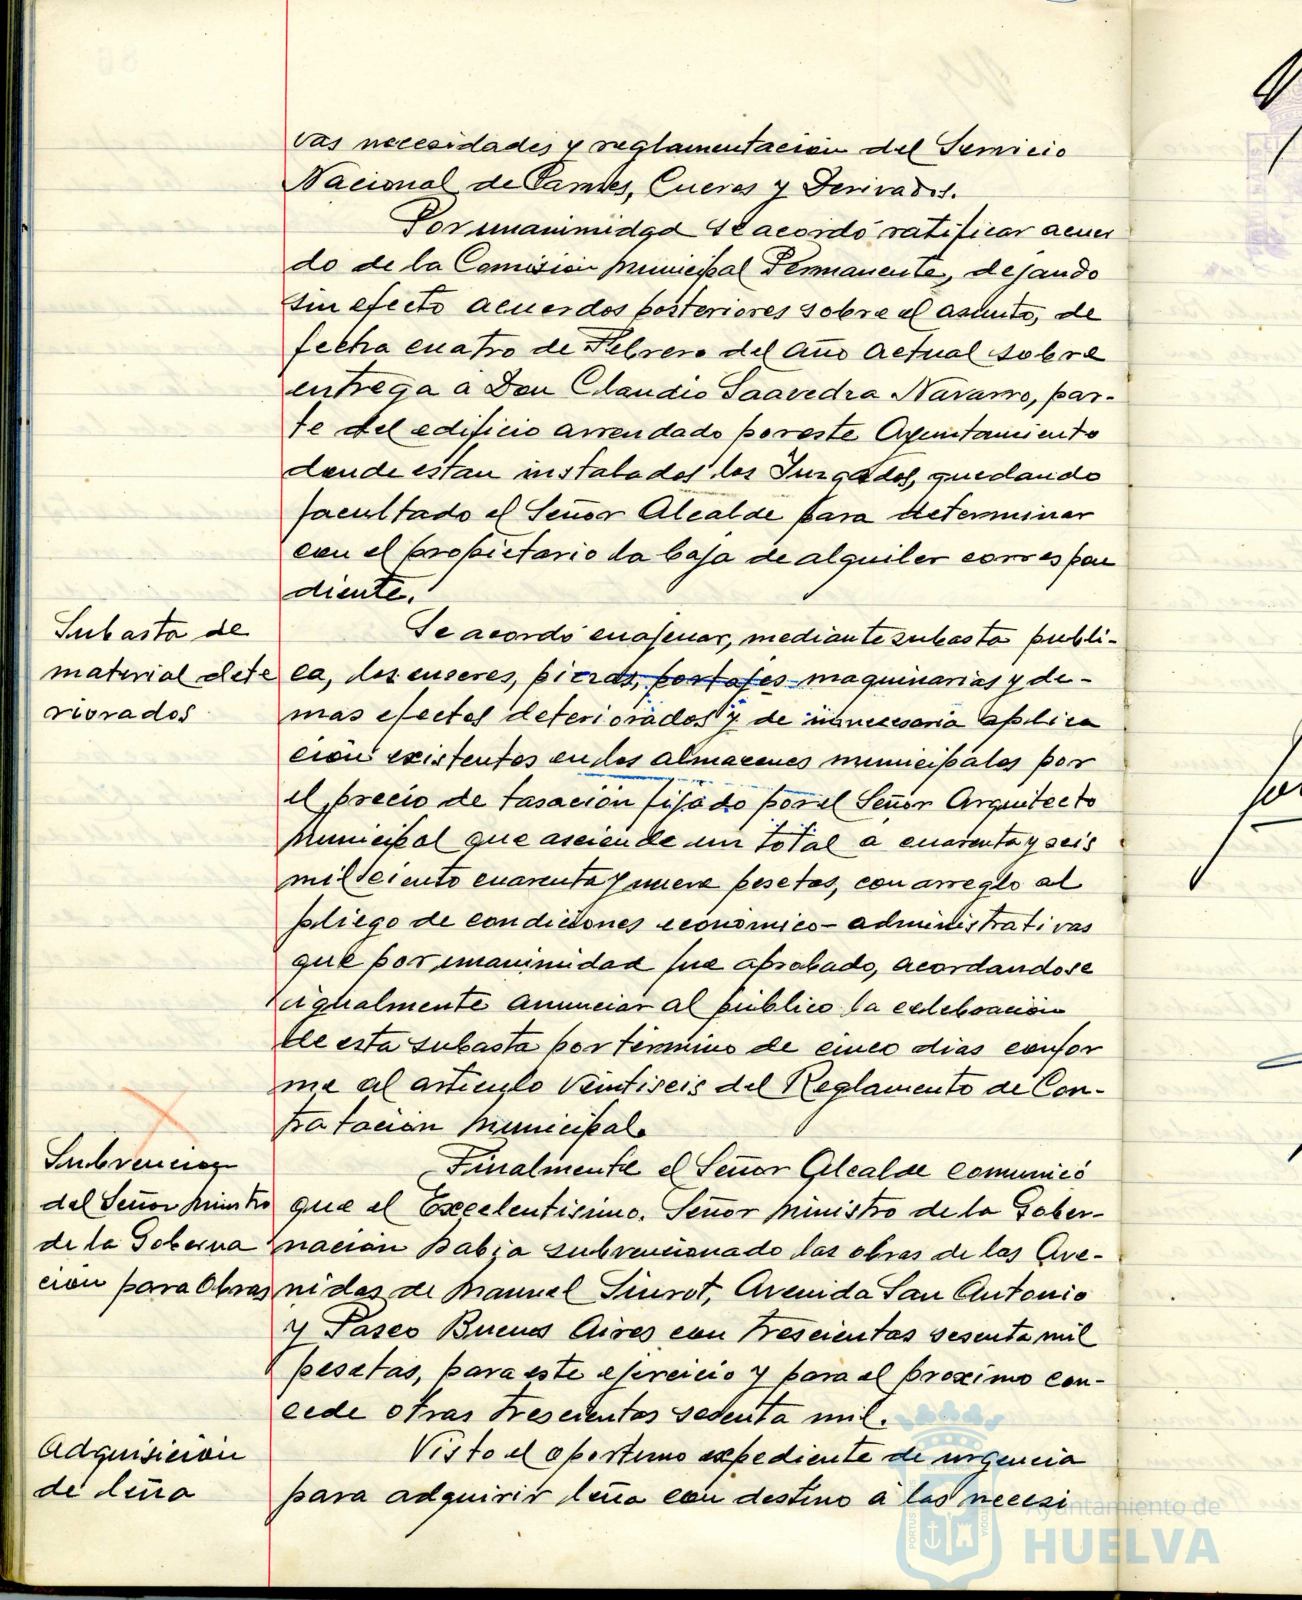 vas necesidades y reglamentación del Servicio
Nacional de Carnes, Cueros y Derivados.
Por unanimidad se acordó ratificar acuer
do de la Comisión Municipal Permanente, dejando
sin efecto acuerdos posteriores sobre el asunto, de
fecha cuatro de Febrero del año actual sobre
entrega a Don Claudio Saavedra Navarro, par-
te del edificio arrendado por este Ayuntamiento
donde estan instalados los Juzgados, quedando
facultado el Señor Alcalde para determinar
con el propietario la baja de alquiler correspon
diente.
Subasta de
material dete
riorados
Se acordó enajenar, mediante subasta públi-
ca, los enseres, piezas, portajes maquinarias y de-
mas efectos deteriorados y de innecesaria aplica
ción existentes en los almacenes municipales por
el precio de tasación fijado por el Señor Arquitecto
Municipal que asciende un total a cuarenta y seis
mil ciento cuarenta y nueve pesetas, con arreglo al
pliego de condiciones económico-administrativas
que por unanimidad fue aprobado, acordandose
igualmente anunciar al público la celebración
de esta subasta por término de cinco dias confor
me al artículo veintiseis del Reglamento de Con-
tratación Municipal.
Subvencion
del Señor Ministro
de la Goberna
ción para Obras
Finalmente el Señor Alcalde comunicó
que el Excelentisimo. Señor Ministro de la Gober-
nación habia subvencionado las obras de las Ave-
nidas de Manuel Siurot, Avenida San Antonio
y Paseo Buenos Aires con trescientas sesenta mil
pesetas, para este ejercicio y para el proximo con-
cede otras trescientas sesenta mil.
Adquisición
de leña
Visto el oportuno expediente de urgencia
para adquirir leña con destino a las necesi
Ayuntamiento de
HUELVA